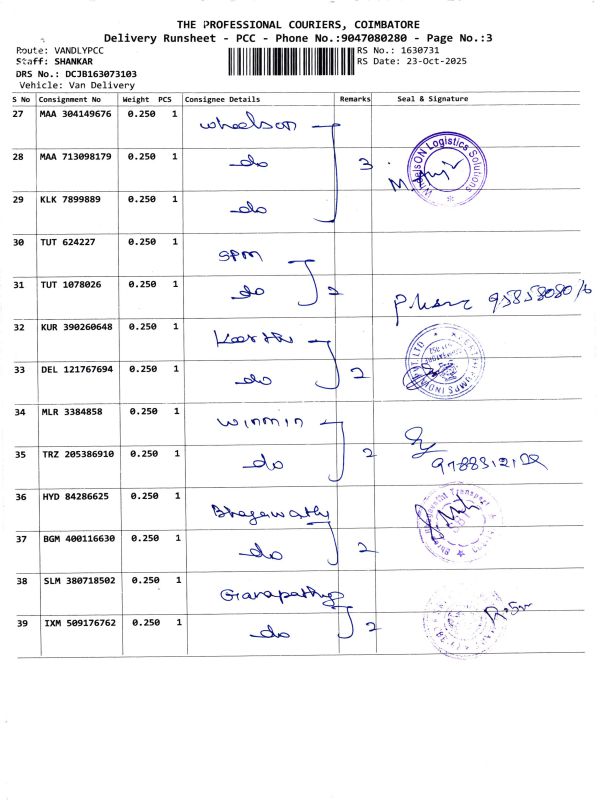 THE PROFESSIONAL COURIERS, COIMBATORE
Delivery Runsheet - PCC - Phone No.:9047080280 - Page No.:3
Route: VANDLYPCC RS No.: 1630731
Staff: SHANKAR RS Date: 23-Oct-2025
DRS No.: DCJB163073103
Vehicle: Van Delivery
S No Consignment No Weight PCS Consignee Details Remarks Seal & Signature
27 MAA 304149676 0.250 1 wheelson
28 MAA 713098179 0.250 1 do 3
WheelsON Logistics Solutions
29 KLK 7899889 0.250 1 do
30 TUT 624227 0.250 1 SPM
31 TUT 1078026 0.250 1 do 2
32 KUR 390260648 0.250 1
33 DEL 121767694 0.250 1 do 2
34 MLR 3384858 0.250 1 winmin
35 TRZ 205386910 0.250 1 do 2
36 HYD 84286625 0.250 1 Bhagawathy
37 BGM 400116630 0.250 1 do 2
38 SLM 380718502 0.250 1 Ganapathy
39 IXM 509176762 0.250 1 do 2